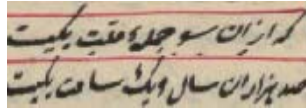 که ازان سو جملهٔ ملت یکیست
صد هزاران سال و یک ساعت یکیست